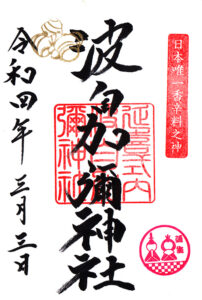 日本唯一香辛料之神
波自加彌神社
延喜式内
波自加
彌神社
令和四年 三月三日